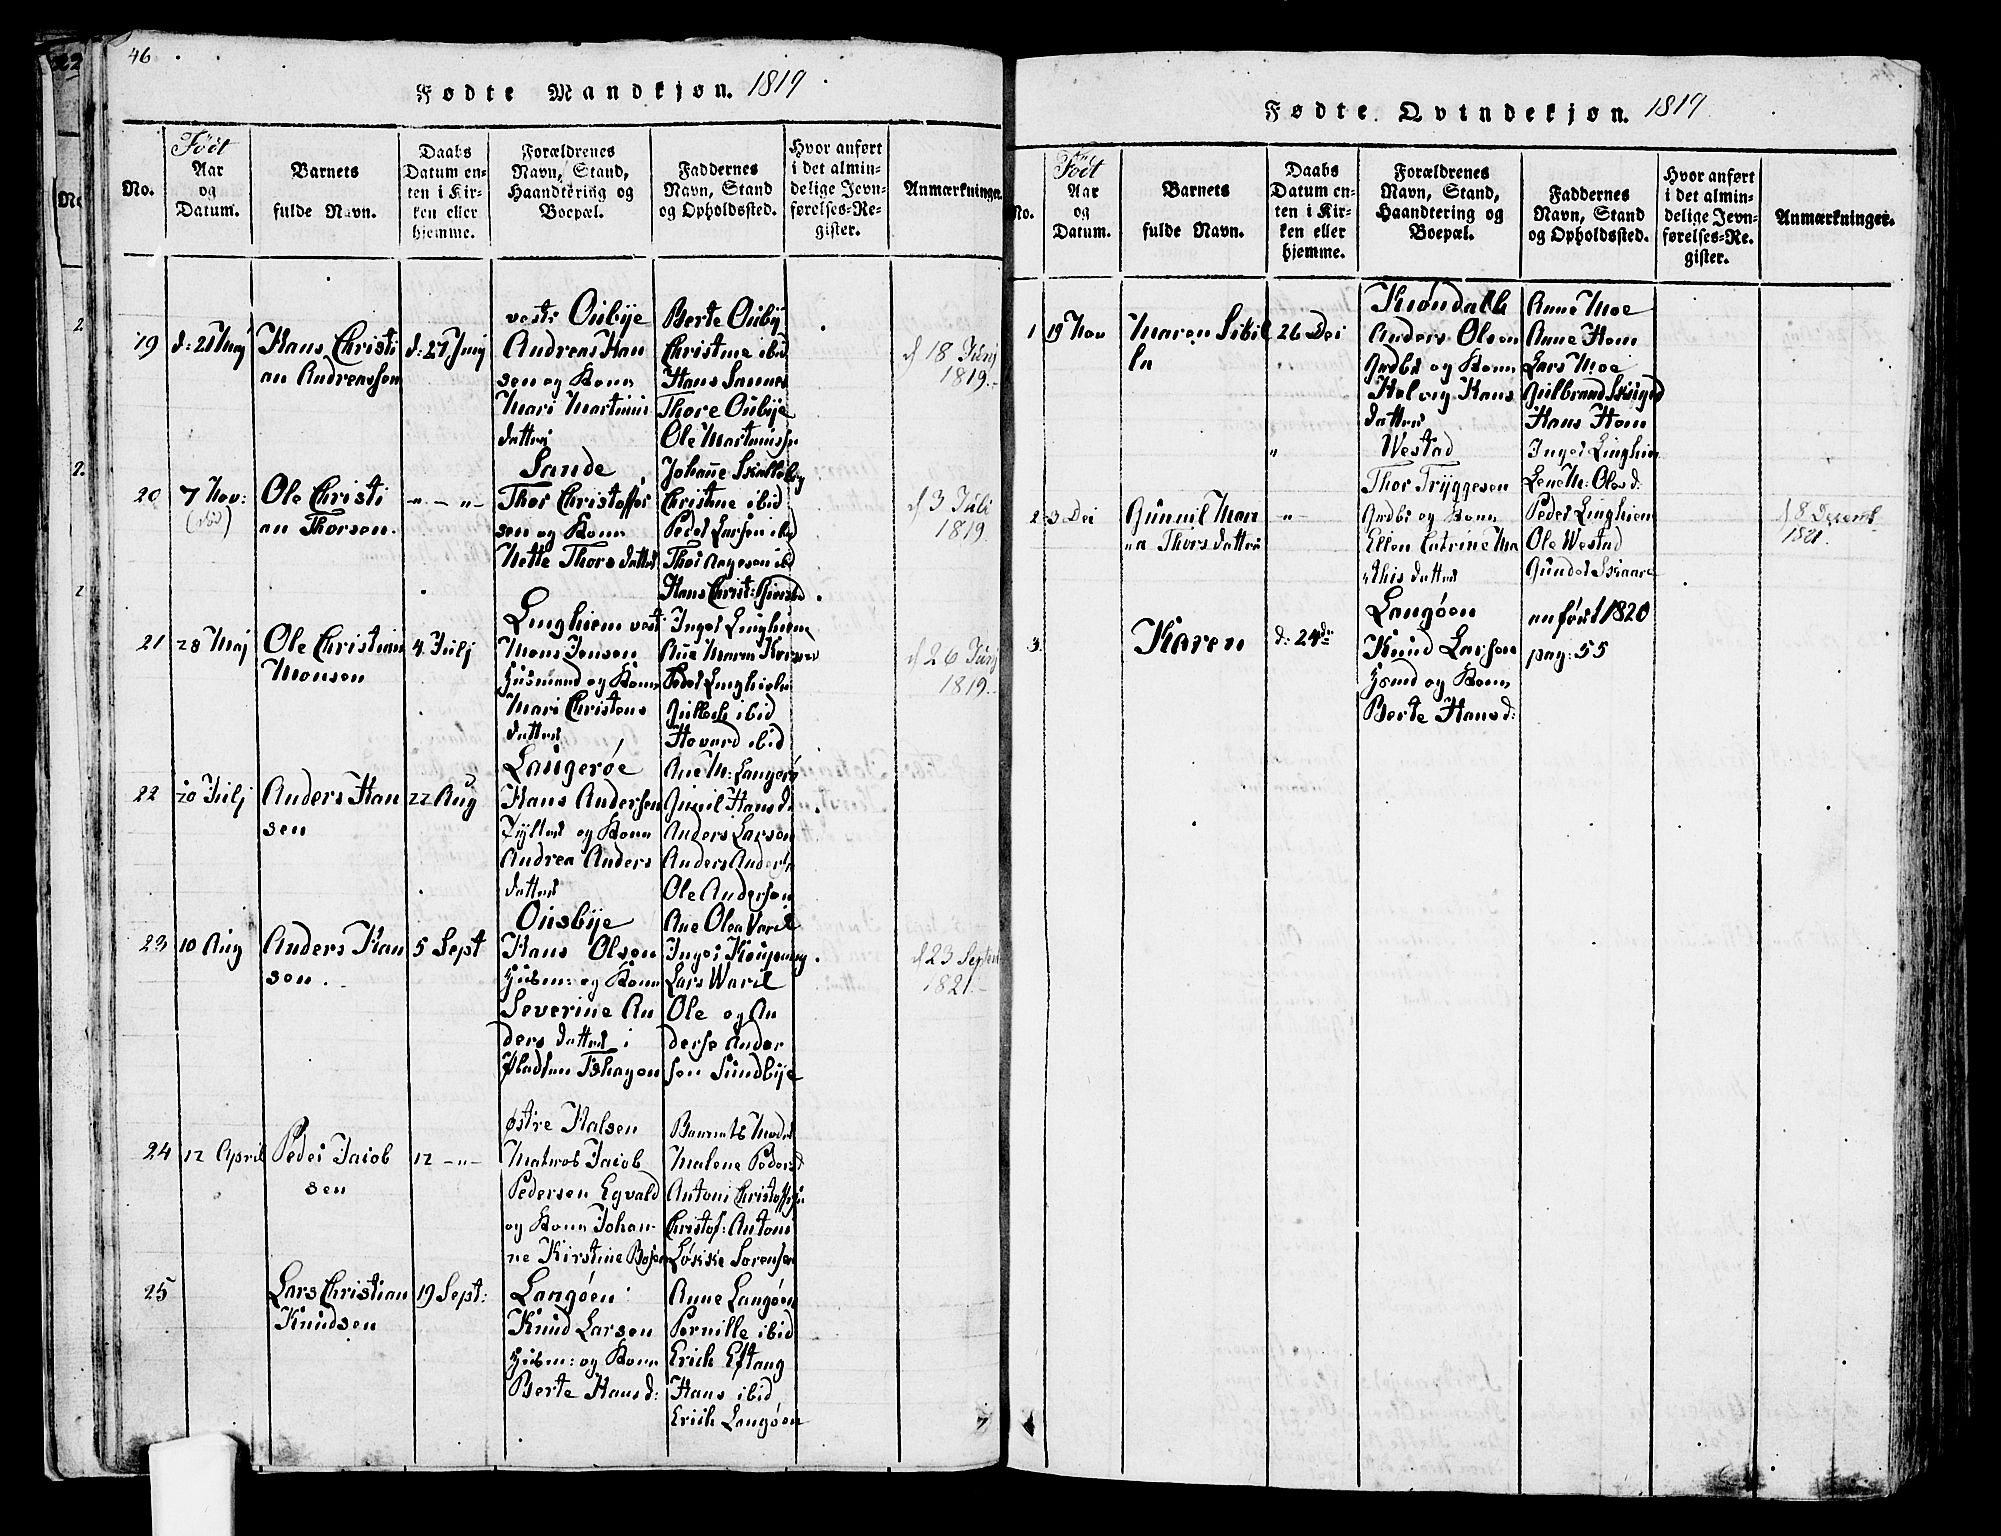 46
Fødte Mandkjøn. 1819
No.
Født
Aar
og
Datum.
Barnets
fulde Navn.
Daabs
Datum en-
ten i Kir-
ken eller
hjemme.
Forældrenes
Navn, Stand,
Haandtering og
Boepæl.
Faddernes
Navn, Stand
og Opholdssted.
Hvor anført
i det almin-
delige Jevn-
førelses-Re-
gister.
Anmærkninger.
19
Hans Christi
an Andreassen
vestr Oubye
Andreas Han
sen og Kone
Mari Martini
datter
Berte Ouby
Christine ibid
Hans Sannes
Thore Oubye
d 18 Junj
1819.
20
7 Nov:
Ole Christi
an Thorsen.
Sande
Thor Christoffer
sen og Kone
Mette Thorsdatter
Christine ibid
Peder Larsen ibid
d 3 Juli
1819.
21
28 Maj
Ole Christian
Monsen
4 Julj
Linghiem vest
Mons Jensen
Huusmand og Kone
Mari Christens
datter
Inger Linghiem
Peder Linghiem
Gulbech ibid
Hovard ibid
d 26 Junj
1819.
22
20 Julj
Anders Han
sen
22 Aug
Langerøe
Hans Andersen
og Kone
Andrea Anders
datter
Ane M: Langerø
Gunil Hansd:
Anders Larsen
Anders Anders
Ole Andersen
23
10 Aug
Anders Han
sen.
5 Sept
Ousbye
Hans Olsen
Husm: og Kone
Severine An
ders datter i
Pladsen
Ane Olea Varil
Lars Waril
Ole og An
ders Ander
sen Sundbye
d 23 Septem
1821.
24
12 April
Peder Jacob
sen
12 - „ -
østre Halsen
Matros Jacob
Pedersen Egvald
og Kone Johan-
ne Kirstine
Barnets Moder
Malene Peders
Antoni Christoffersen
Christof: Antoni
Løkke Sorensen
25
Lars Christian
Knudsen
19 Sept:
Langøen
Knud Larsen
Husm: og Kone
Berte Hans d:
Anne Langøen
Pernille ibid
Erich Eftang
Hans ibid
Erich Langøen
Fødte Qvindekjøn. 1819
No.
Født
Aar
og
Datum.
Barnets
fulde Navn.
Daabs
Datum en-
ten i Kir-
ken eller
hjemme.
Forældrenes
Navn, Stand,
Haandtering og
Boepæl.
Faddernes
Navn, Stand
og Opholdssted.
Hvor anført
i det almin-
delige Jevn-
førelses-Re-
gister.
Anmærkninger.
1
19 Nov
Maren Sibil
la
26 Dei
Anders Olsen
og Kone
Helvig Hans
datter
Anne Moe
Anne Hem
Lars Moe
Hans Hem
2
3 Dei
Gunnil Mari
a Thorsdatter
Westad
Thor Tryggesen
og Kone
Ellen Catrine Ma
this datter
Inger Linghiem
Lene M: Olsd:
Peder Linghiem
Ole Westad
Gunder Skaare
d 8 Decemb
1821.
3.
Karen
d: 24de
Langøen
Knud Larsen
Hsmd og Kone
Berte Hansd:
anført 1820
pag: 55